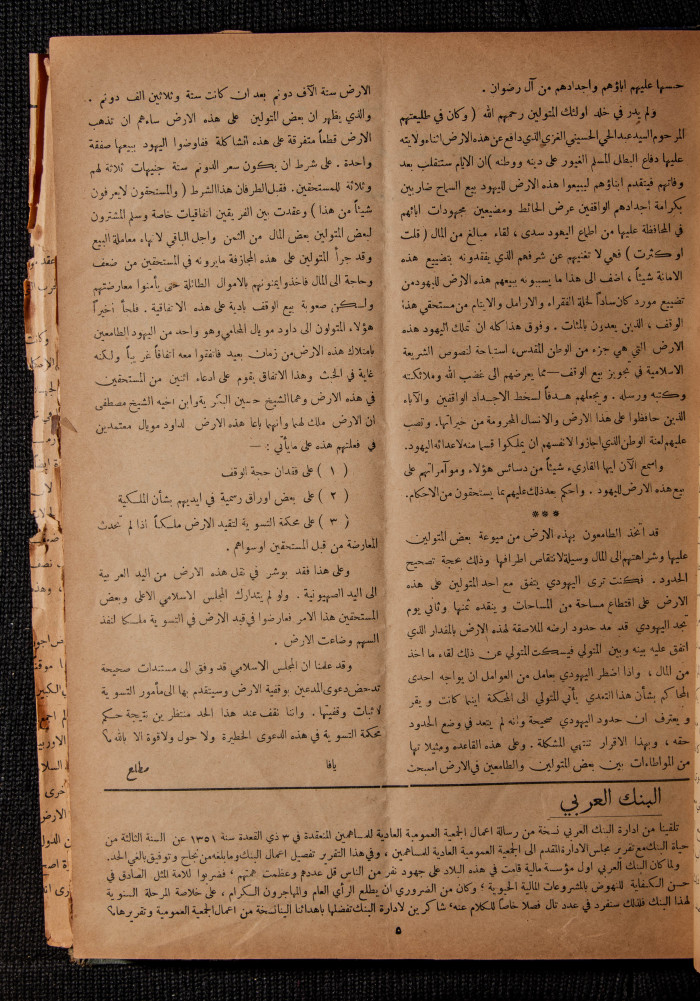 حبسها عليهم اباؤهم واجدادهم من آل رضوان .
ولم يدر في خلد اولئك المتولين رحمهم الله ( وكان في طليعتهم
المرحوم السيد عبد الحي الحسيني الغزي الذي دافع عن هذه الارض اثناء ولايته
عليها دفاع البطل المسلم الغيور على دينه ووطنه ) ان الايام ستنقلب بعد
وفاتهم فيتقدم ابناؤهم ليبيعوا هذه الارض لليهود بيع السماح ضاربين
بكرامة اجدادهم الواقفين عرض الحائط ومضيعين مجهودات ابائهم
في المحافظة عليها من اطماع اليهود سدى ، لقاء مبالغ من المال ( قلت
او كثرت ) فهي لا تغنيهم عن شرفهم الذي يفقدونه بتضييع هذه
الامانة شيئاً ، اضف الى هذا ما يسببونه ببيعهم هذه الارض لليهود من
تضييع مورد كان ساداً لحلة الفقراء والارامل والايتام من مستحقي هذا
الوقف ، الذين يعدون بالمئات . وفوق هذا كله ان تملك اليهود هذه
الارض التي هي جزء من الوطن المقدس، استباحة لنصوص الشريعة
الاسلامية في تجويز بيع الوقف — مما يعرضهم الى غضب الله وملائكته
وكتبه ورسله . ويجعلهم هدفاً لسخط الاجداد الواقفين والآباء
الذين حافظوا على هذا الارض والانسال المحرومة من خيراتها . وتصب
عليهم لعنة الوطن الذي اجازوا لانفسهم ان يملكوا قسما منه لاعدائه اليهود.
واسمع الآن ايها القارىء شيئاً من دسائس هؤلاء ومؤآمراتهم على
بيع هذه الارض لليهود . واحكم بعد ذلك عليهم بما يستحقون من الاحكام.
* * *
قد اتخذ الطامعون بهذه الارض من ميوعة بعض المتولين
عليها وشراهتهم الى المال وسيلة لانتقاص اطرافها وذلك بحجة تصحيح
الحدود . فكنت ترى اليهودي يتفق مع احد المتولين على هذه
الارض على اقتطاع مساحة من المساحات و ينقده ثمنها وثاني يوم
تجد اليهودي قد مد حدود ارضه الملاصقة لهذه الارض بالمقدار الذي
اتفق عليه بينه وبين المتولي فيسكت المتولي عن ذلك لقاء ما اخذ
من المال ، واذا اضطر اليهودي بعامل من العوامل ان يواجه احدى
المحاكم بشأن هذا التعدي يأتي المتولي الى المحكمة اينما كانت و يقر
و يعترف ان حدود اليهودي صحيحة وانه لم يتعد في وضع الحدود
حقه ، وبهذا الاقرار تنتهي المشكلة . وعلى هذه القاعدة ومثيلاتها
من المواطاءات بين بعض المتولين والطامعين في الارض اصبحت
الارض ستة الآف دونم بعد ان كانت ستة وثلاثين الف دونم . .
والذي يظهر ان بعض المتولين على هذه الارض ساءهم ان تذهب
الارض قطعاً متفرقة على هذه الشاكلة ففاوضوا اليهود ببيعها صفقة
واحدة . على شرط ان يكون سعر الدونم ستة جنيهات ثلاثة لهم
وثلاثة للمستحقين . فقبل الطرفان هذا الشرط ( والمستحقون لا يعرفون
شيئاً من هذا ) وعقدت بين الفريقين اتفاقيات خاصة وسلم المشترون
لبعض المتولين بعض المال من الثمن واجل الباقي لانهاء معاملة البيع
وقد جرأ المتولين على هذه المجازفة مايرونه في المستحقين من ضعف
وحاجة الى المال فاخذوا يمنونهم بالاموال الطائلة حتى يأمنوا معارضتهم
ولكن صعوبة بيع الوقف بادية على هذه الاتفاقية . فلجأ اخيراً
هؤلاء المتولون الى داود مويال المحامي وهو واحد من اليهود الطامعين
بامتلاك هذه الارض من زمان بعيد فاتفقوا معه اتفاقاً غريباً ولكنه
غاية في الخبث وهذا الاتفاق يقوم على ادعاء اثنين من المستحقين
في هذه الارض وهما الشيخ حسين البكرية وابن اخيه الشيخ مصطفى
ان الارض ملك لهما وانهما باعا هذه الارض لداود مويال معتمدين
في فعلتهم هذه على ما يأتي : —
( ١ ) على فقدان حجة الوقف
( ٢ ) على بعض اوراق رسمية في ايديهم بشأن الملكية
( ٣ ) على محكمة التسوية لتقيد الارض ملكاً اذا لم تحدث
المعارضة من قبل المستحقين او سواهم .
وعلى هذا فقد بوشر في نقل هذه الارض من اليد العربية
الى اليد الصهيونية . ولو لم يتدارك المجلس الاسلامي الاعلى وبعض
المستحقين هذا الامر فعارضوا في قيد الارض في التسوية ملكا لنفذ
السهم وضاعت الارض .
وقد علمنا ان المجلس الاسلامي قد وفق الى مستندات صحيحة
تدحض دعوى المدعين بوقفية الارض وسيتقدم بها الى مأمور التسوية
لاثبات وقفيتها . واننا نقف عند هذا الحد منتظرين نتيجة حكم
محكمة التسوية في هذه الدعوى الخطيرة ولا حول ولا قوة الا بالله ؟
يافا
مطلع
البنك العربي
تلقينا من ادارة البنك العربي نسخة من رسالة اعمال الجمعية العمومية العادية للمساهمين المنعقدة في ٣ ذي القعدة سنة ١٣٥١ عن السنة الثالثة من
حياة البنك مع تقرير مجلس الادارة المقدم الى الجمعية العمومية العادية للمساهمين ، وفي هذا التقرير تفصيل اعمال البنك وما بلغه من نجاح وتوفيق بالغي الحد.
ولما كان البنك العربي اول مؤسسة مالية قامت في هذه البلاد على جهود نفر من الناس قل عددهم وعظمت همتهم ، فضربوا للامة المثل الصادق في
حسن الكفاية للنهوض بالمشروعات المالية الحيوية ، وكان من الضروري ان يطلع الرأي العام والمهاجرون الكرام ، على خلاصة المرحلة السنوية
لهذا البنك فلذلك سنفرد في عدد تال فصلا خاصاً للكلام عنه ، شاكرين لادارة البنك تفضلها باهدائنا الينا نسخة من اعمال الجمعية العمومية وتقريرها . ؟
٥